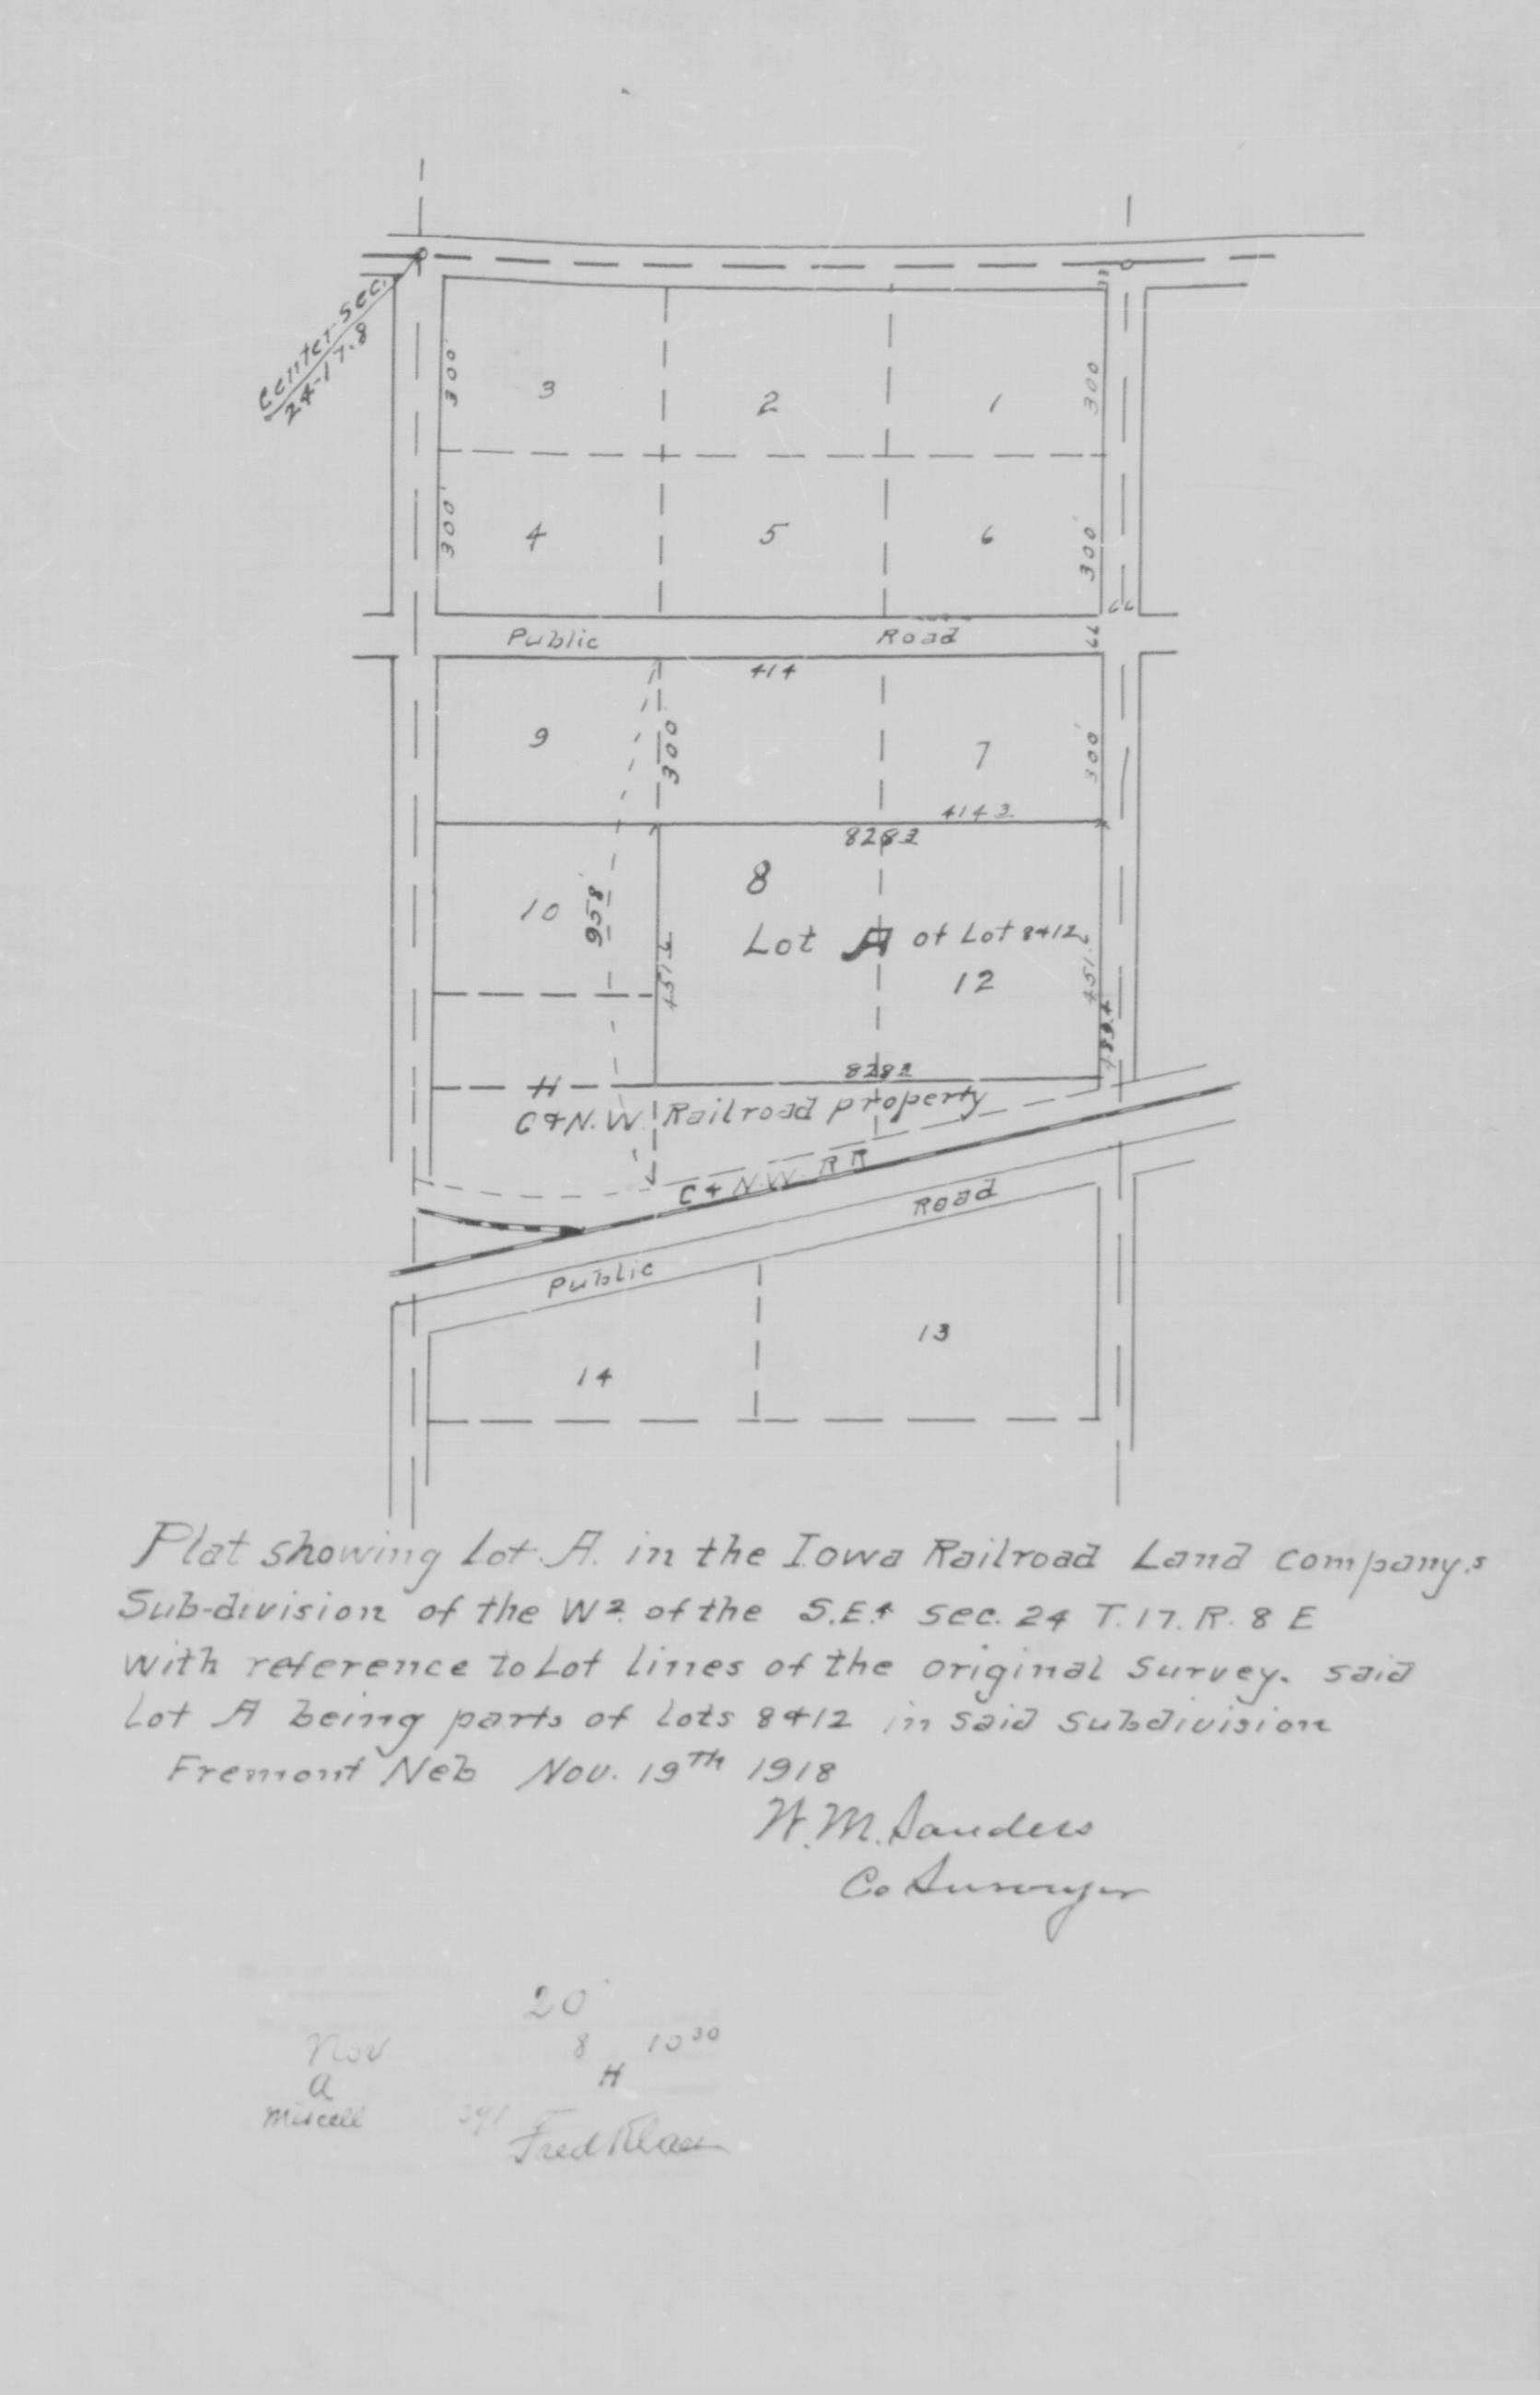 Center Sec.
24-17-8
33
300'
3
2
1
300
300'
4
5
6
300'
66
Public Road
66
414
9
300
7
300'
414 2
828 2
8
10
958
Lot A of Lot 8 & 12
451.6
12
451.6
489.4
828 2
11
C & N. W. Railroad property
C & N. W. R R
Road
Public
13
14
Plat showing Lot. A. in the Iowa Railroad Land company,s
Sub-division of the W 2 of the S.E.4 Sec. 24 T. 17. R. 8 E
with reference to Lot lines of the original Survey. said
Lot A being parts of Lots 8 & 12 in said subdivision
Fremont Neb Nov. 19th 1918
W. M. Sanders
Co Surveyor
20
Nov 8 10 30
A
Miscell